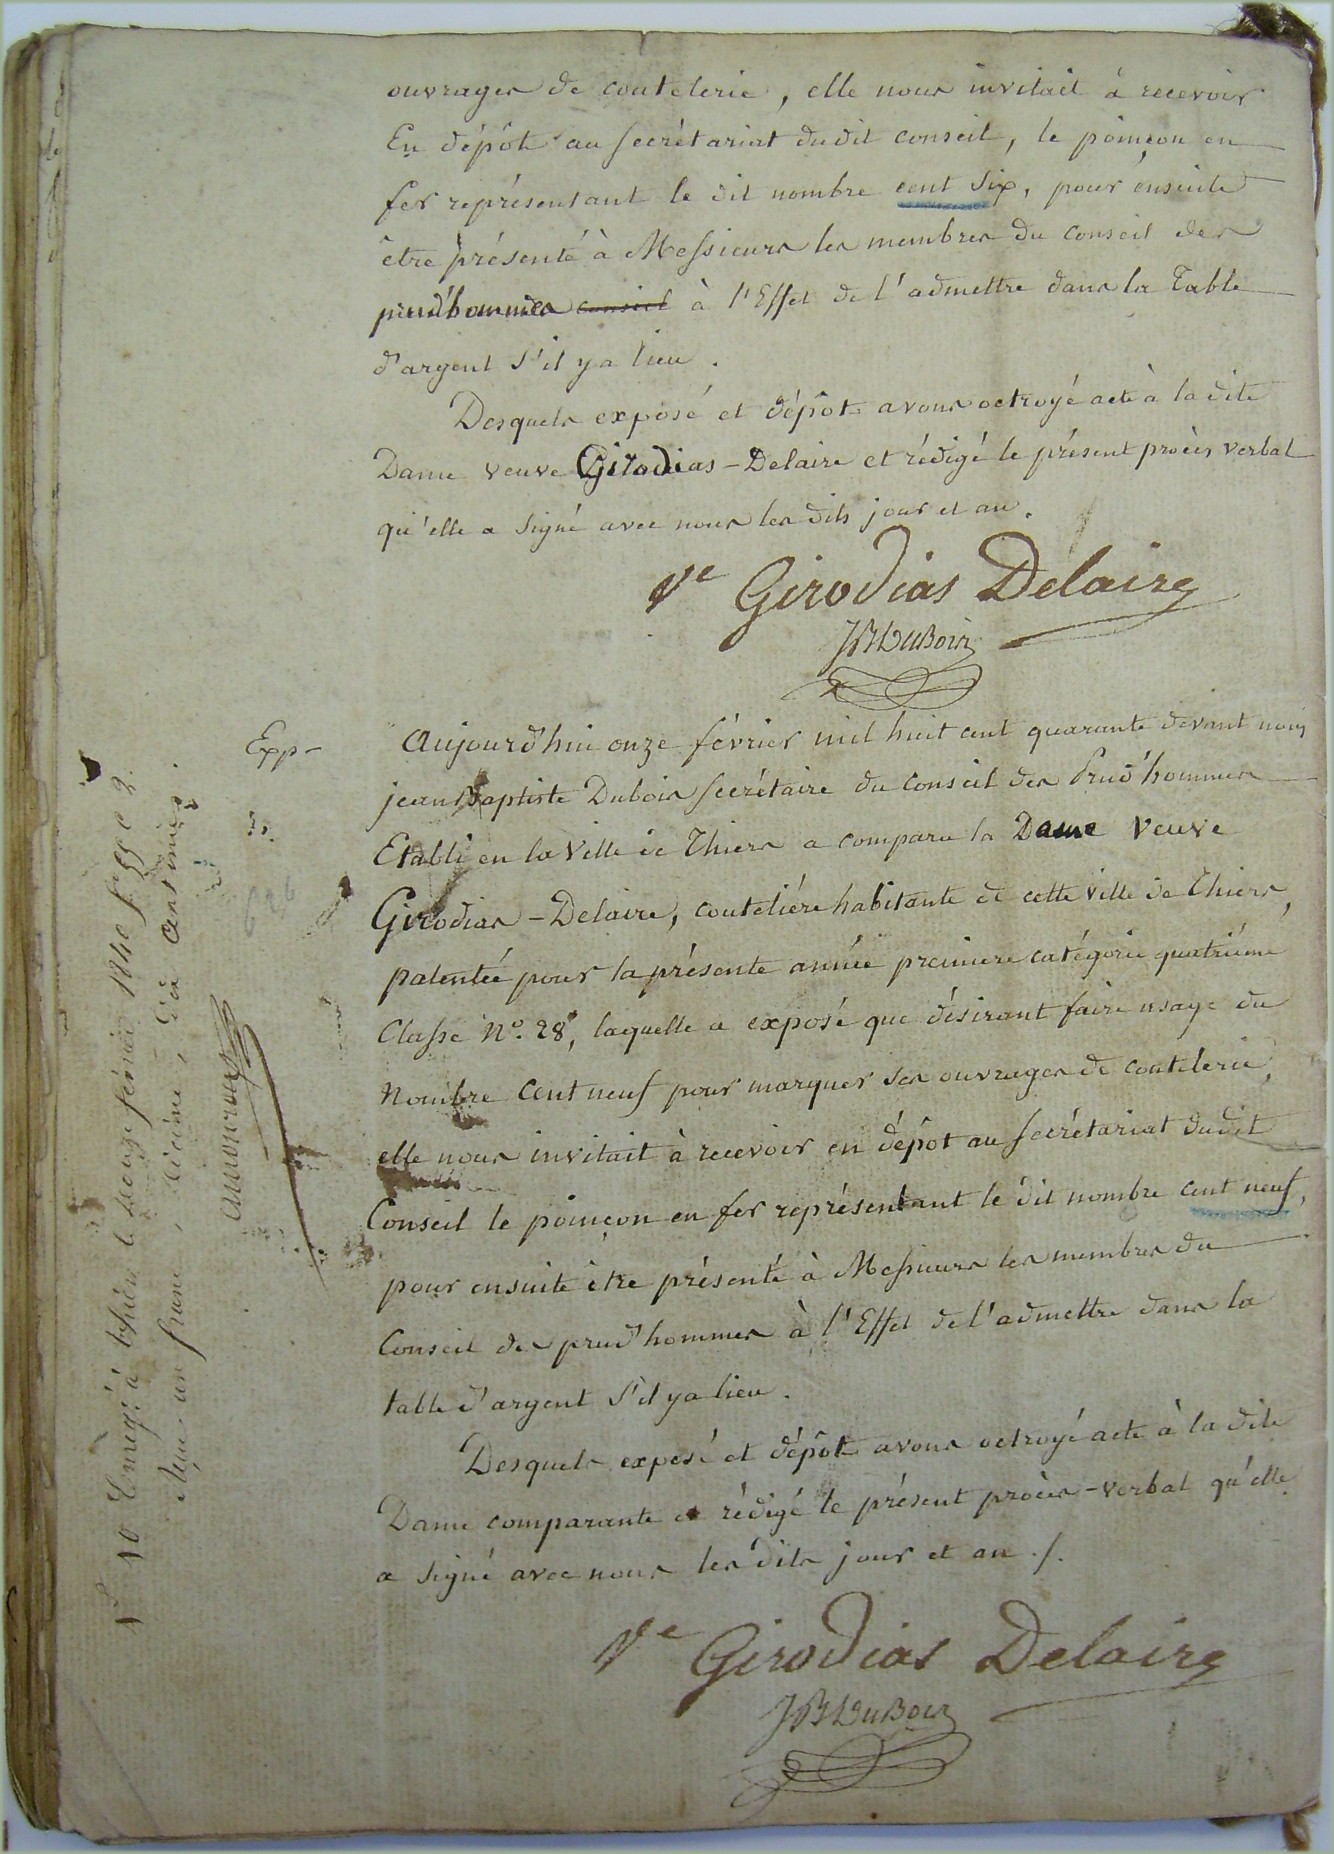 ouvrages de coutelerie, elle nous invitait à recevoir
En dépôt au secrétariat dudit conseil, le poinçon en
fer représentant le dit nombre cent six, pour ensuite
être présenté à Messieurs les membres du conseil des
prud'hommes conseil à l'Effet de l'admettre dans la Table
d'argent s'il y a lieu.
Desquels exposé et dépôt avons octroyé acte à la dite
Dame veuve Girodias-Delaire et rédigé le présent procès verbal
qu'elle a signé avec nous les dits jour et an.
Ve Girodias Delaire
JB Dubois
Exp-
Aujourd'hui onze février mil huit cent quarante devant nous
jean Baptiste Dubois secrétaire du conseil des Prud'hommes
Etabli en la Ville de Thiers a comparu la Dame Veuve
Girodias-Delaire, coutelière habitante de cette ville de Thiers,
patentée pour la présente année premiere catégorie quatrième
Classe N°. 28, laquelle a exposé que désirant faire usage du
Nombre Cent neuf pour marquer ses ouvrages de coutelerie,
elle nous invitait à recevoir en dépôt au secrétariat dudit
Conseil le poinçon en fer représentant le dit nombre cent neuf,
pour ensuite être présenté à Messieurs les membres du
Conseil des prud'hommes à l'Effet de l'admettre dans la
table d'argent s'il y a lieu.
Desquels exposé et dépôt avons octroyé acte à la dite
Dame comparante et rédigé le présent procès-verbal qu'elle
a signé avec nous les dits jour et an ./.
Ve Girodias Delaire
JB Dubois
Enregé. à Thiers le douze février 1840 f° 55 c 2.
Reçu un franc, décime, dix centimes.